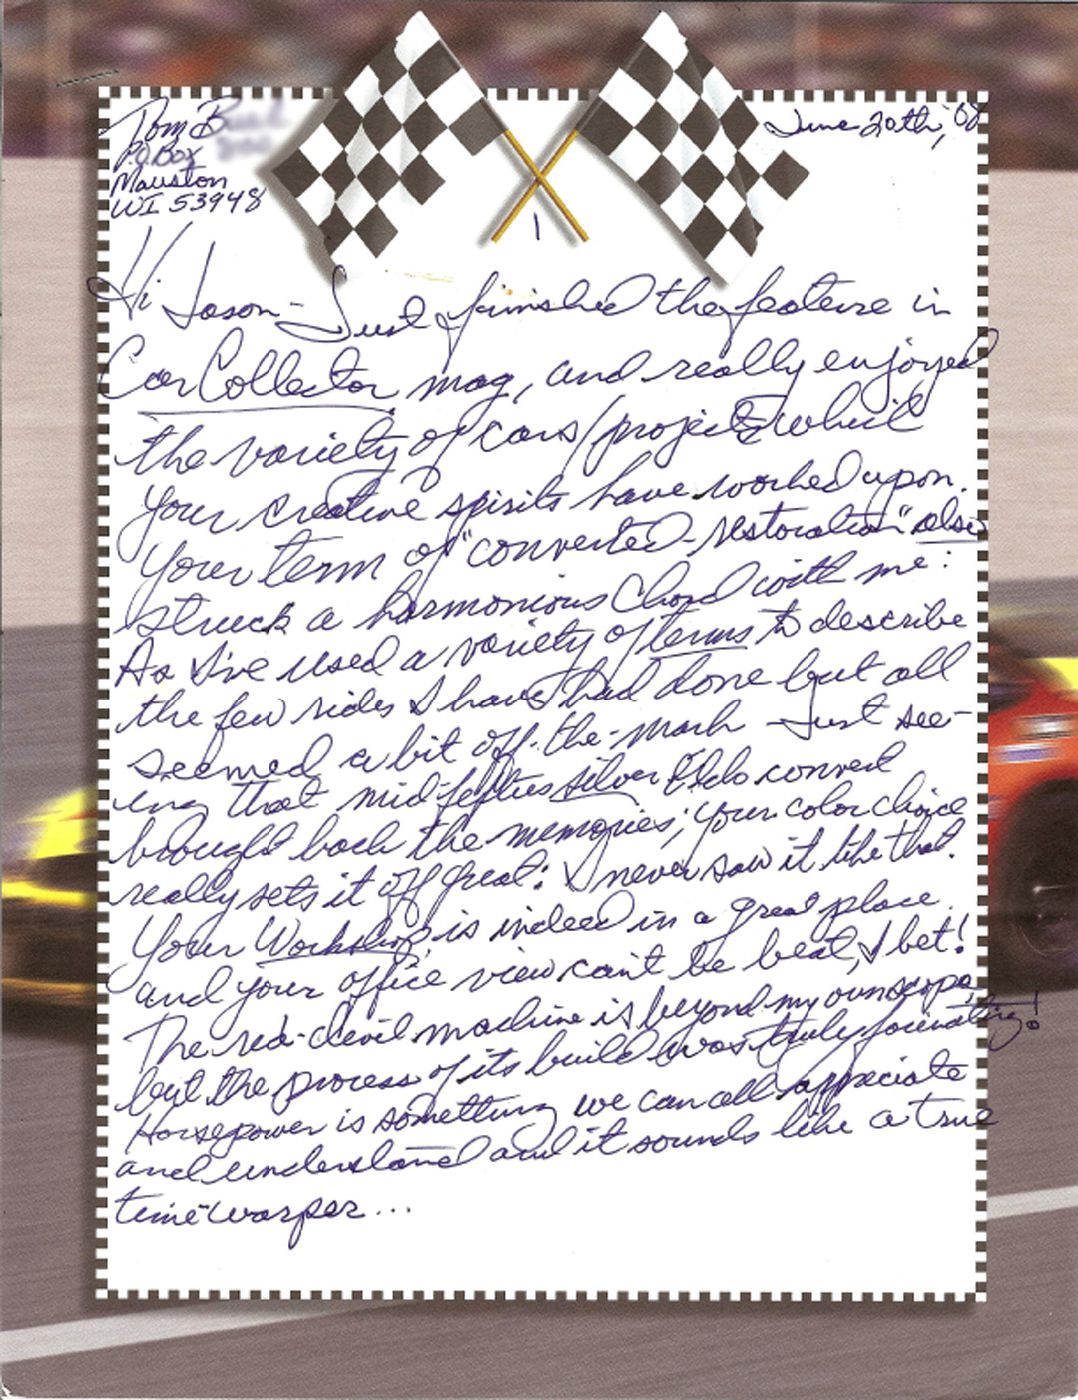 Tom B
P.O. Box
Mauston
WI 53948
June 20th, '08
1
Hi Jason - Just finished the feature in
Car Collector mag, and really enjoyed
the variety of cars/projects which
your creative spirits have worked upon.
Your term of "converted-restoration" also
struck a harmonious chord with me:
As I've used a variety of terms to describe
the few rides I have had done but all
seemed a bit off-the-mark Just see-
ing that mid fifties silver Eldo convert
brought back the memories; your color choice
really sets it off great: I never saw it like that.
Your Workshop is indeed in a great place.
and your office view can't be beat, I bet!
The red-devil machine is beyond my own scope,
but the process of its build was truly fascinating!
Horsepower is something we can all appreciate
and understand and it sounds like a true
time-warper...